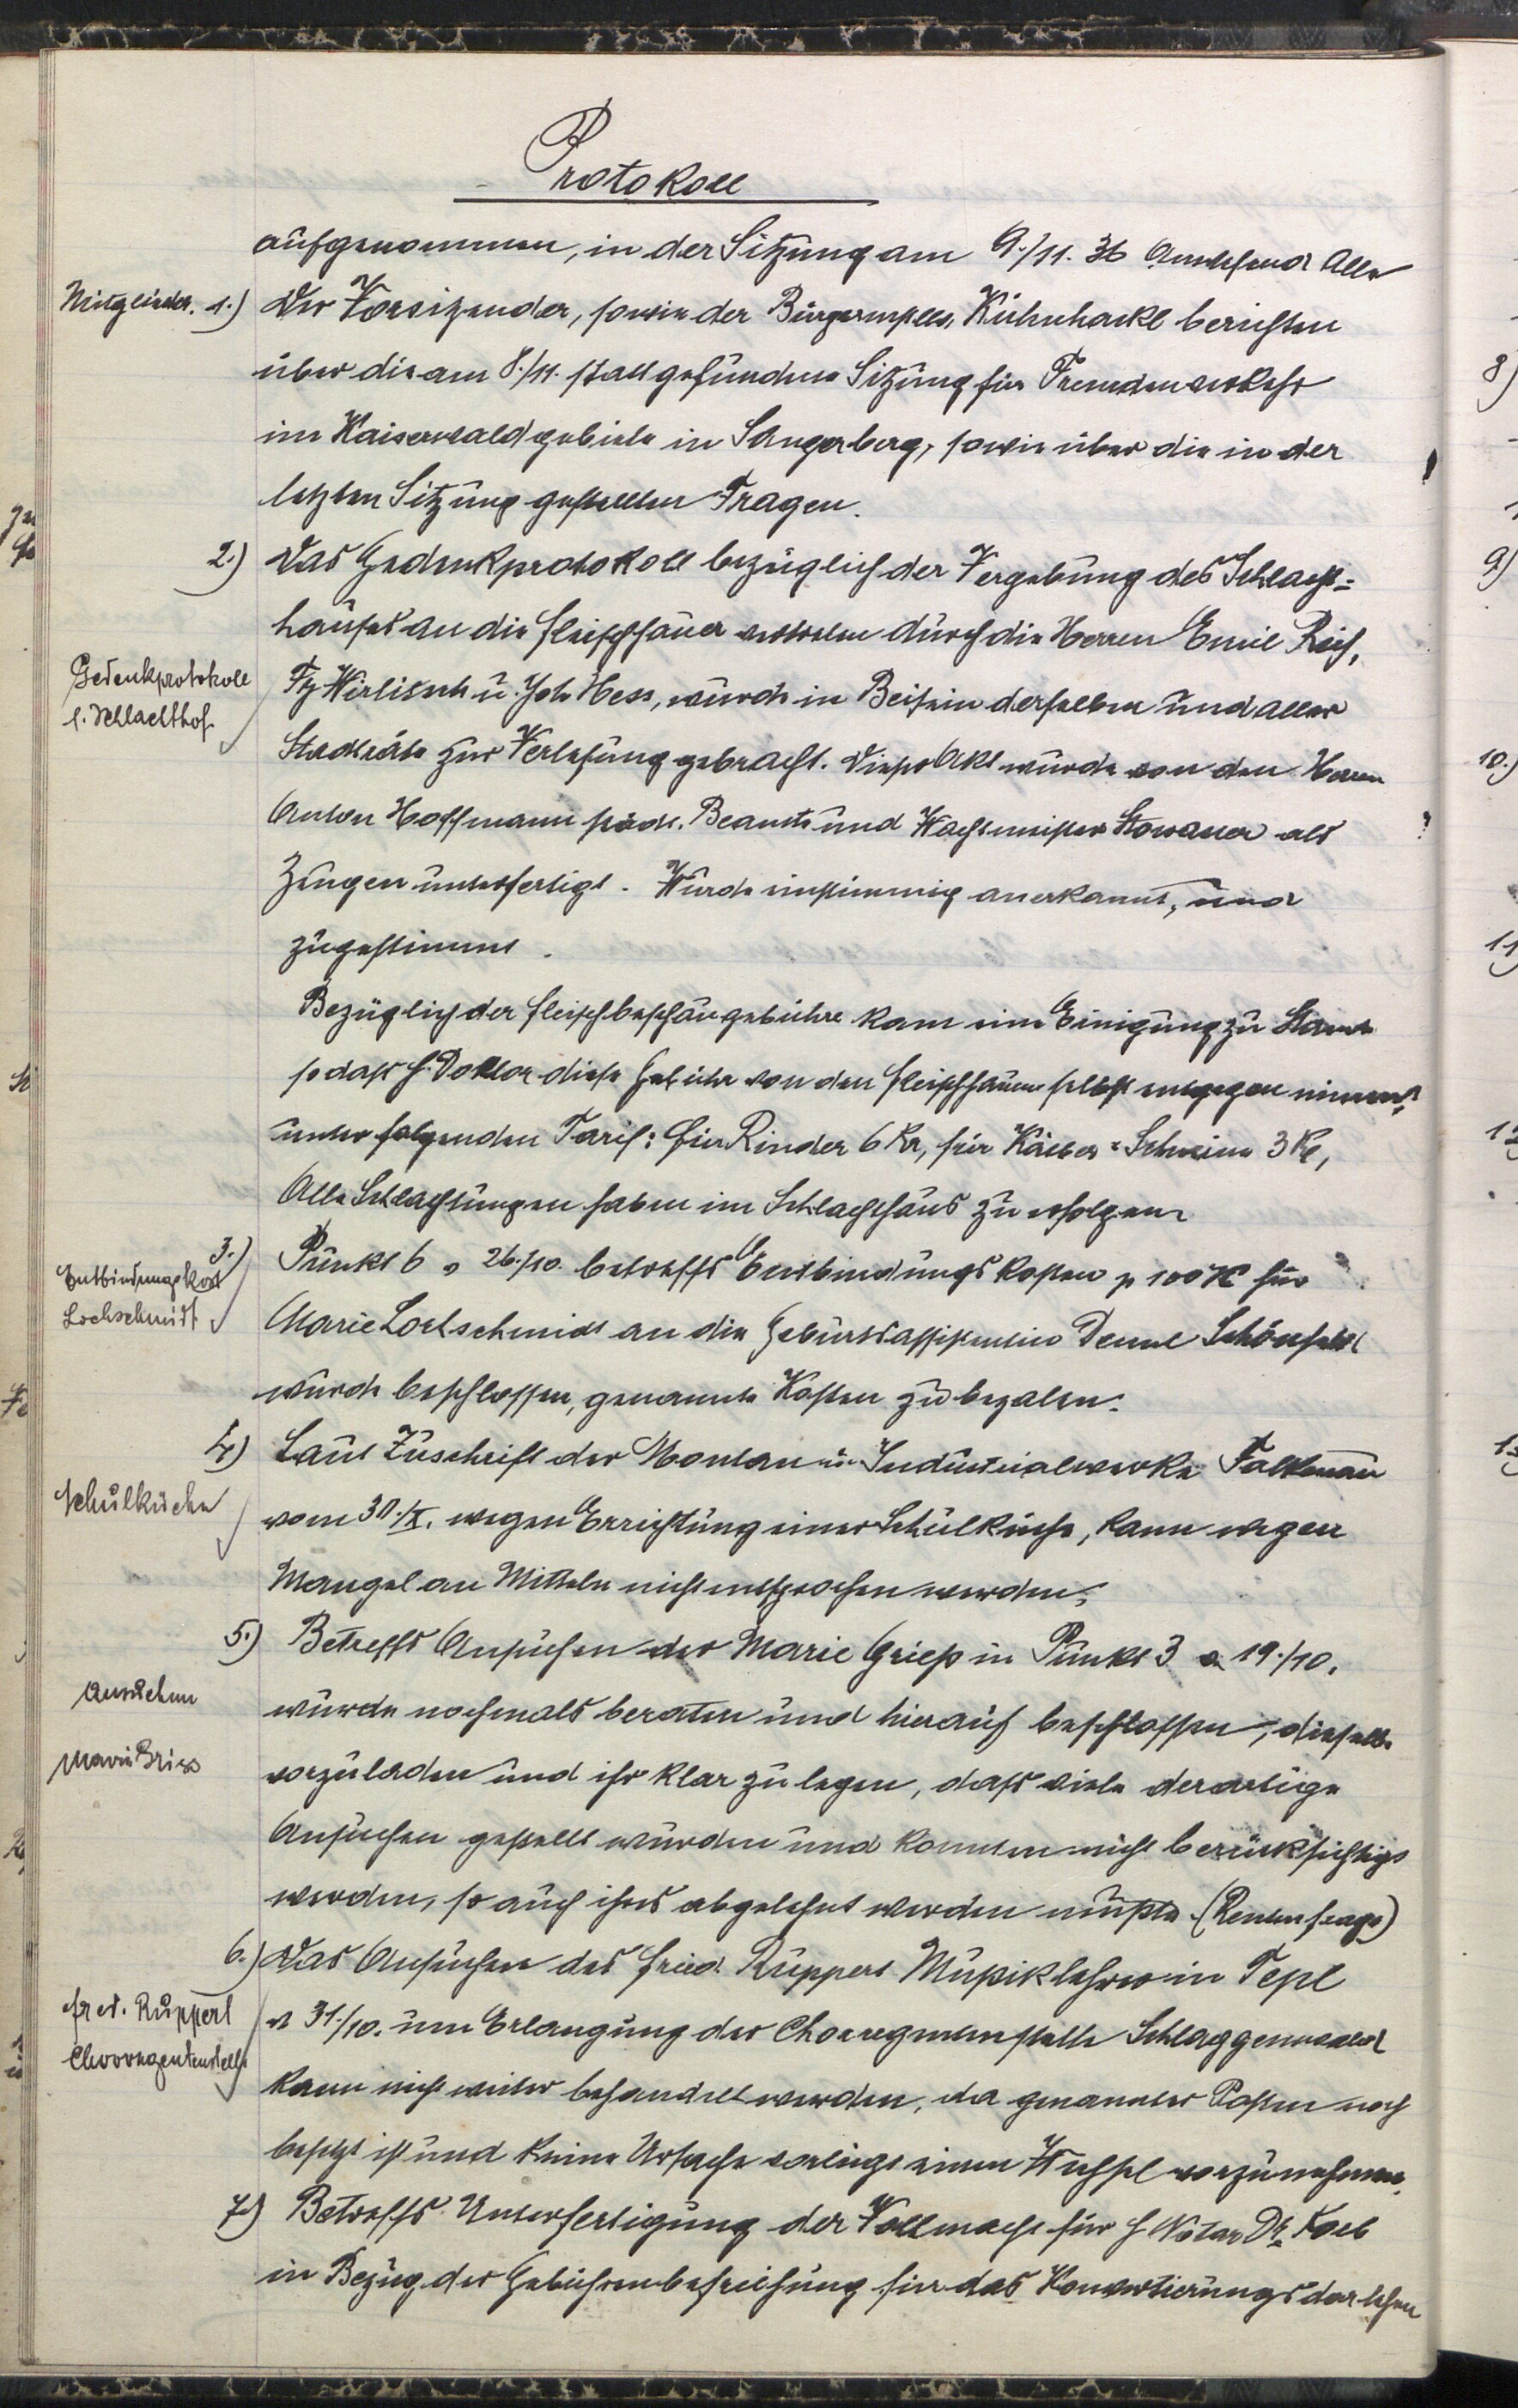 Protokoll
aufgenommen, in der Sitzung am 9./11. 36 Anwesend Alle
Mitglieder. 1.) Der Vorsitzender, sowie der Bürgermstr. Kühnhackl berichten
über die am 8./11. stattgefundene Sitzung für Fremdenverkehr
im Kaiserwaldgebiete in Sangerberg, sowie über die in der
letzten Sitzung gestellten Fragen.
2.) Das Gedenkprotokoll bezüglich der Vergebung des Schlacht=
hauses an die Fleischhauer vertreten durch die Herren Emil Reif,
Gedenkprotokoll
s. Schlachthof
Fz Wirlitsch u. Joh Hess, wurde in Beisein derselben und aller
Stadträte zur Verlesung gebracht. Dieser Akt wurde von den Herren
Anton Hoffmann städt. Beamte und Wachtmeister Stowasser als
Zeugen unterfertigt. Wurde einstimmig anerkannt, und
zugestimmt.
Bezüglich der Fleischbeschaugebühre kam eine Einigung zu Stande
so dass H. Doktor diese Gebühr von den Fleischhauern selbst entgegen nimmt,
unter folgenden Tarif: für Rinder 6 Kr, für Kälber = Schweine 3 Kč,
Alle Schlachtungen haben im Schlachthaus zu erfolgen
3.) Punkt 6 v 26./10. betreffs Entbindungskosten p 100 Kč für
Entbindungskost
Lochschmidt
Marie Lochschmidt an die Geburtsassistentin Deml Schönfeld
wurde beschlossen, genannte Kosten zu bezalen.
4.) Laut Zuschrift der Montan u. Industrialwerke Falkenau
Schulküche
vom 30./X. wegen Errichtung einer Schulküche, kann wegen
Mangel an Mitteln nicht entsprochen werden.
5.) Betreffs Ansuchen der Marie Griess in Punkt 3 v. 19./10.
Ansuchen
wurde nochmals beraten und hierauf beschlossen, dieselbe
Marie Griess
vorzuladen und ihr klar zu legen, dass viele derartige
Ansuchen gestellt wurden und konnten nicht berücksichtigt
werden, so auch ihres abgelehnt werden müsste. (Rentenfrage)
6.) Das Ansuchen des Fried. Ruppert Musiklehrer in Tepl
Fred. Ruppert
v 31./10. um Erlangung der Chorregentenstelle Schlaggenwald
Chorregentenstelle
kann nicht weiter behandelt werden, da genannter Posten noch
besetzt ist und keine Ursache vorliegt einen Wechsel vorzunehmen.
7.) Betreffs Unterfertigung der Vollmacht für H Notar Dr.
in Bezug der Gebührenbefreiung für das Konvertierungsdarlehen
8)
9)
10.)
11
12
13